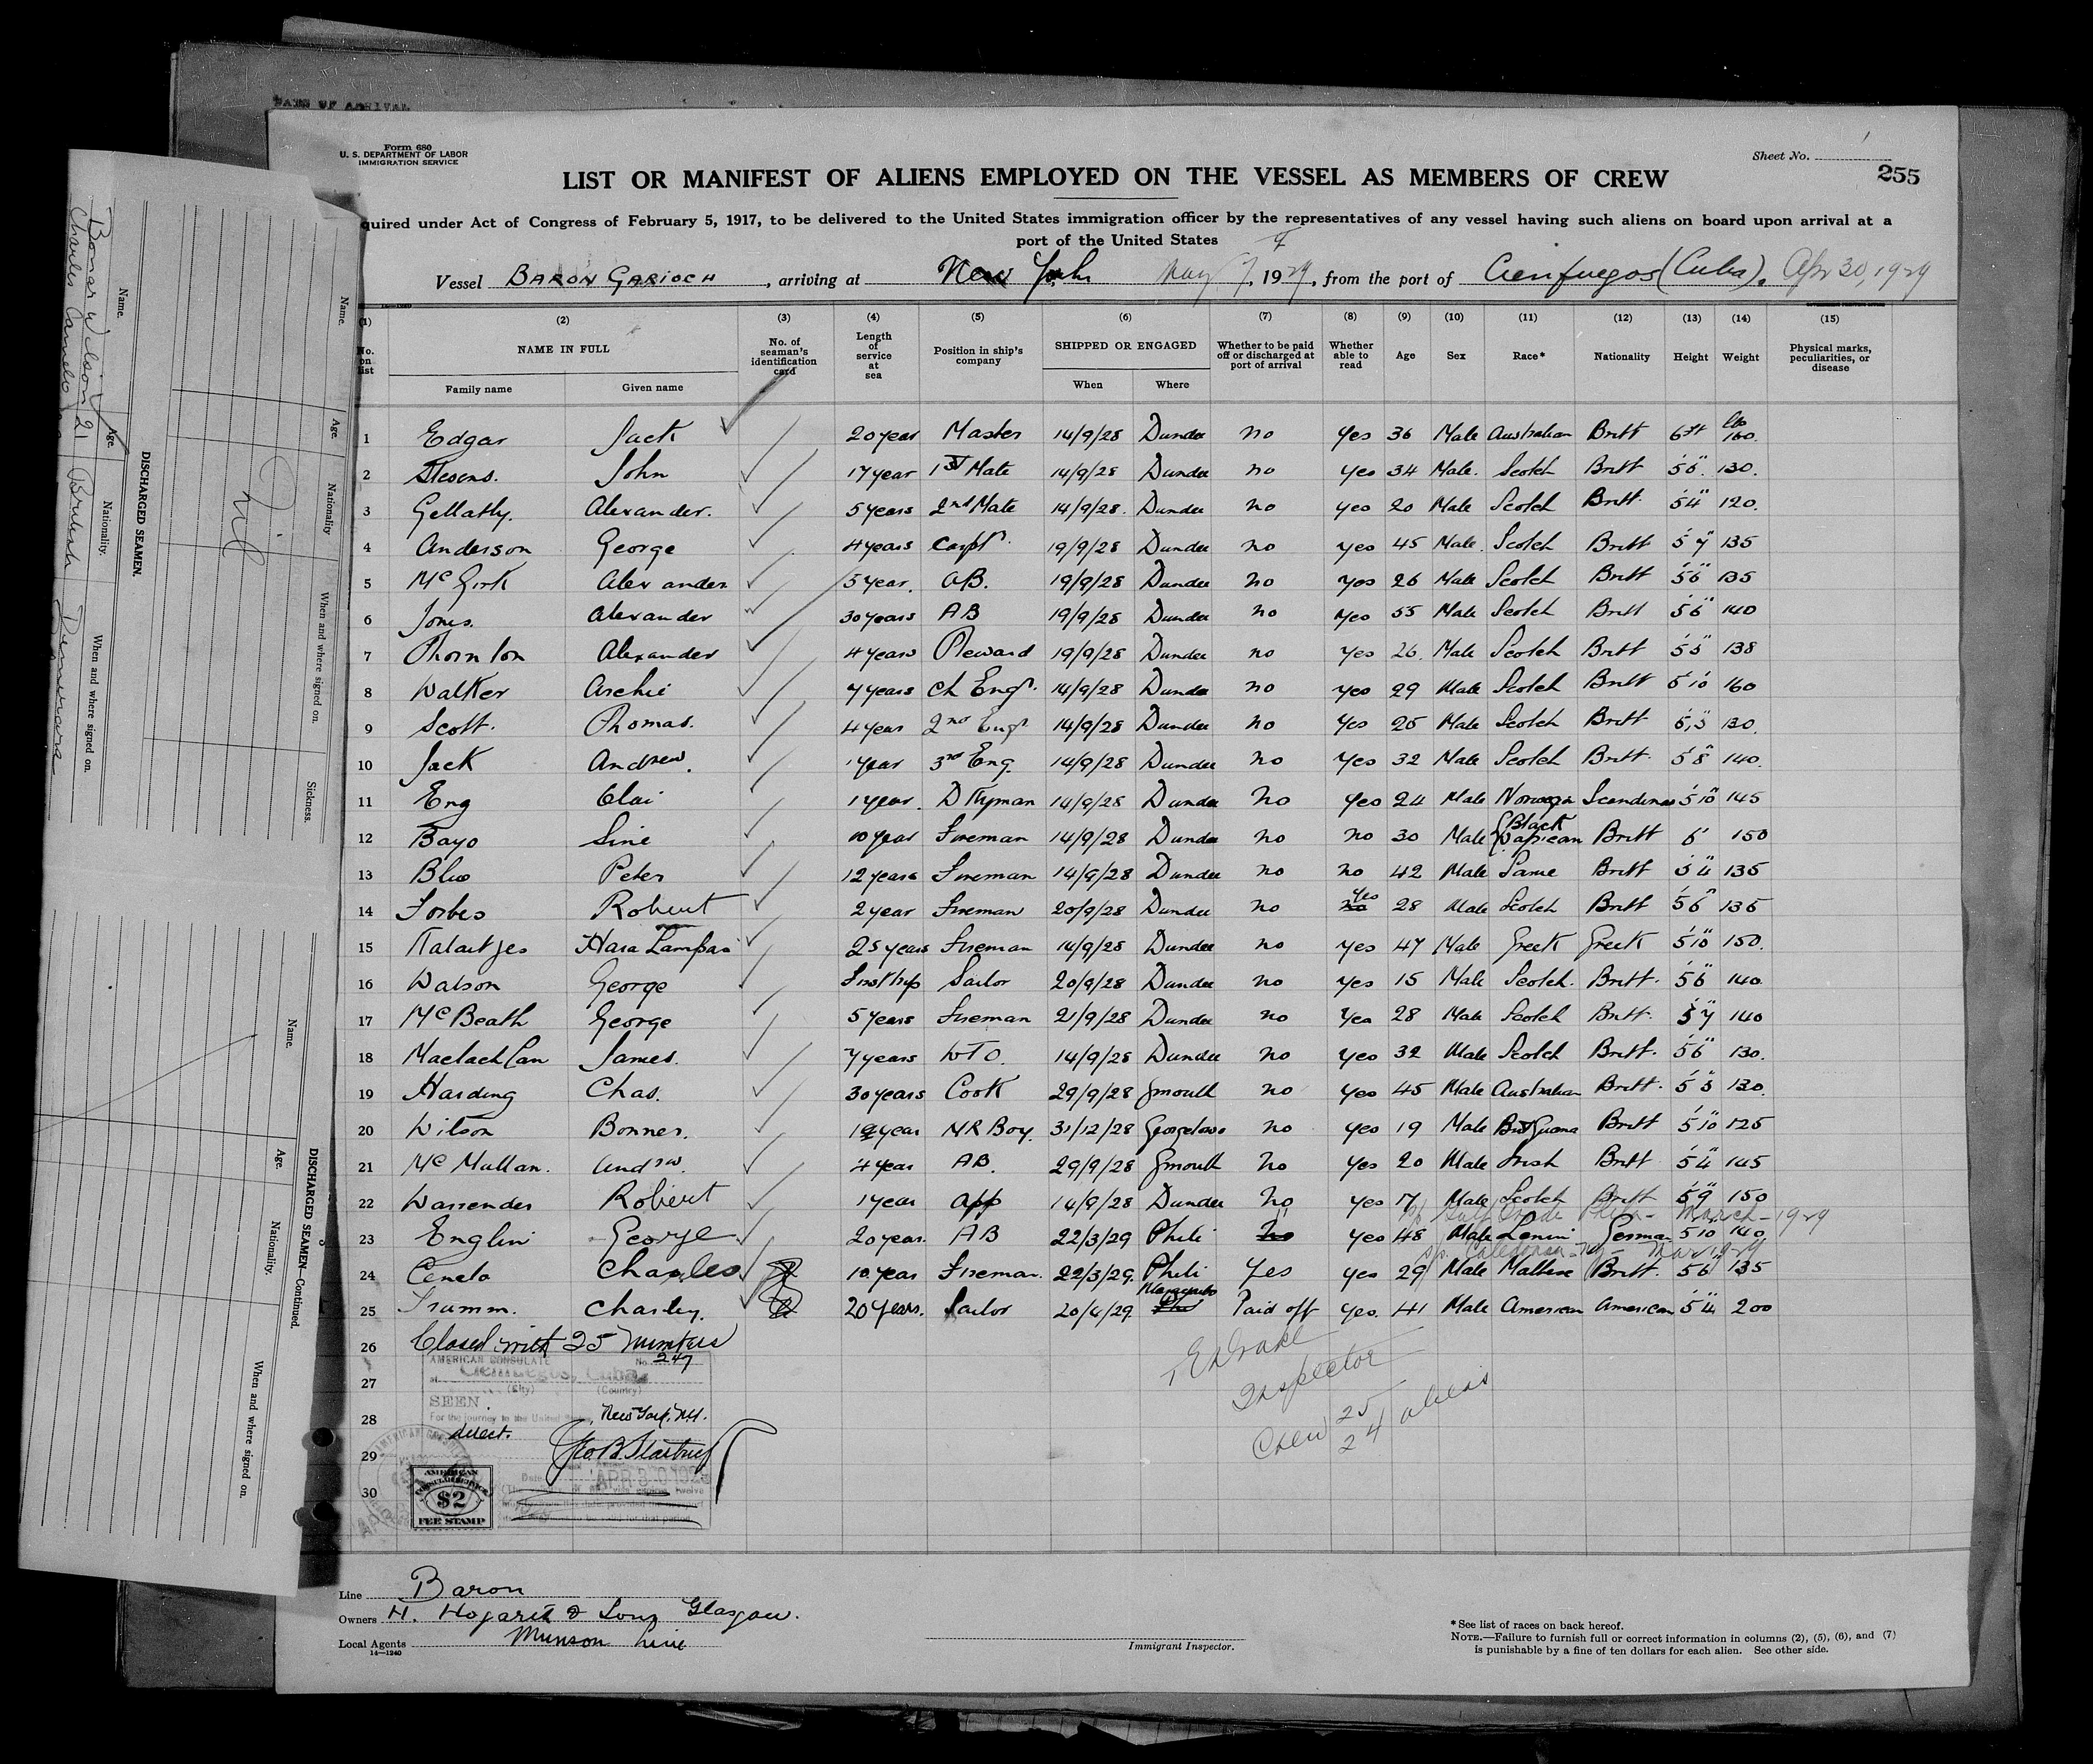 DATE OF ARRIVAL
Form 680
U. S. DEPARTMENT OF LABOR
IMMIGRATION SERVICE
Sheet No. 1
255
LIST OR MANIFEST OF ALIENS EMPLOYED ON THE VESSEL AS MEMBERS OF CREW
quired under Act of Congress of February 5, 1917, to be delivered to the United States immigration officer by the representatives of any vessel having such aliens on board upon arrival at a
port of the United States
Vessel BARON GARIOCH, arriving at New York May 7, 1929, from the port of Cienfuegos (Cuba). Apr 30, 1929
(1) (2) (3) (4) (5) (6) (7) (8) (9) (10) (11) (12) (13) (14) (15)
No. on list NAME IN FULL Family name Given name No. of seaman's identification card Length of service at sea Position in ship's company SHIPPED OR ENGAGED When Where Whether to be paid off or discharged at port of arrival Whether able to read Age Sex Race* Nationality Height Weight Physical marks, peculiarities, or disease
1 Edgar Jack 20 year Master 14/9/28 Dundee no yes 36 Male Australian Britt 6ft lbs 160.
2 Stevens. John 17 year 1st Mate 14/9/28 Dundee no yes 34 Male. Scotch Britt 130.
3 Gellatly. Alexander. 5 years 2nd Mate 14/9/28. Dundee no yes 20 Male Scotch Britt. 5'4" 120.
4 Anderson George 4 years Carpt. 19/9/28 Dundee no yes 45 Male. Scotch Britt 5'7" 135
5 McGirk Alexander 5 year. AB. 19/9/28 Dundee no yes 26 Male Scotch Britt 5'6" 135
6 Jones. Alexander 30 years AB 19/9/28 Dundee no yes 55 Male Scotch Britt 5'6" 140
7 Thornton Alexander 4 years Steward 19/9/28 Dundee no yes 26. Male Scotch Britt 138
8 Walker Archie 7 years Ch Engr. 14/9/28 Dundee no yes 29 Male Scotch Britt 5'10 160
9 Scott. Thomas. 4 year 2nd Engr 14/9/28 Dundee no yes 25 Male Scotch Britt 130.
10 Jack Andrew. 1 year 3rd Eng. 14/9/28 Dundee no yes 32 Male Scotch Britt. 5'8" 140.
11 Eng Olai 1 year. 14/9/28 Dundee no yes 24 Male Scandinav 5'10" 145
12 Bayo Sine 10 year Fireman 14/9/28 Dundee no no 30 Male Black Britt 6' 150
13 Blio Peter 12 years Fireman 14/9/28 Dundee no no 42 Male Same Britt 5'4" 135
14 Forbes Robert 2 year Fireman 20/9/28 Dundee no yes 28 Male Scotch Britt 5'6" 135
15 25 years Fireman 14/9/28 Dundee no yes 47 Male Greek Greek 5'10" 150.
16 Watson George First trip Sailor 20/9/28 Dundee no yes 15 Male Scotch. Britt. 5'6" 140.
17 McBeath George 5 years Fireman 21/9/28 Dundee no yes 28 Male Scotch Britt. 5'7" 140
18 Maclachlan James. 7 years WTO. 14/9/28 Dundee no yes 32 Male Scotch Britt. 5'6" 130.
19 Harding Chas. 30 years Cook 29/9/28 no yes 45 Male Australian Britt. 130.
20 Wilson Bonner. year MR Boy. 31/12/28 Georgetown no yes 19 Male Brit Guiana Britt 5'10" 125
21 McMullan. Andrw. 4 year AB. 29/9/28 no yes 20 Male Irish Britt 5'4" 145
22 Warrender Robert 1 year App 14/9/28 Dundee no yes 17 Male Scotch Britt 5'9" 150
March - 1929
23 Englin George 20 year. AB 22/3/29 Phili no yes 48 Male German 5'10" 140
24 Charles 10 year Fireman. 22/3/29. Phili Yes yes 29 Male Maltese Britt. 5'6" 135
25 Trumm. Charley. 20 years. Sailor 20/4/29. Paid off yes. 41 Male American American 5'4" 200
26 Closed with 25 members
27
28
29
30
AMERICAN CONSULATE No. 247
at Cienfuegos, Cuba
(City) (Country)
SEEN
For the journey to the United States
New York, N.Y.
direct.
Date APR 30 1929
AMERICAN
$2
FEE STAMP
Inspector
Crew 25
24 aliens
Line Baron
Owners H. Hogarth & Sons Glasgow.
Local Agents Munson Line
14—1240
Immigrant Inspector.
*See list of races on back hereof.
NOTE.—Failure to furnish full or correct information in columns (2), (5), (6), and (7)
is punishable by a fine of ten dollars for each alien. See other side.
Name. Age. Nationality When and where signed on. Sickness.
Nil
DISCHARGED SEAMEN.
Name. Age. Nationality. When and where signed on.
Bonar Wilson 21 British Demerara
Charles Camelo
DISCHARGED SEAMEN—Continued.
Name. Age. Nationality. When and where signed on.